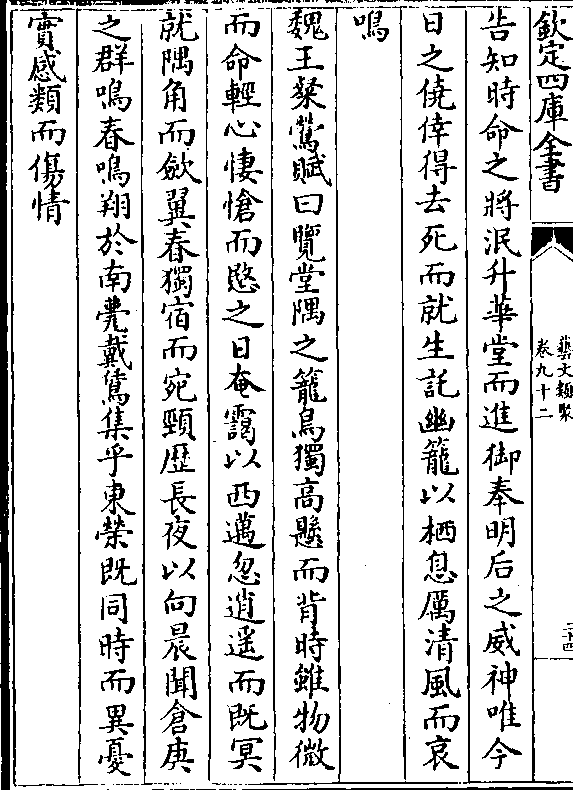 欽定四庫全書
藝文類聚
卷九十二
二十四
告知時命之將泯升華堂而進御奉明后之威神唯今
日之僥倖得去死而就生託幽籠以栖息厲清風而哀
鳴
魏王粲鶯賦曰覽堂隅之籠鳥獨高懸而背時雖物微
而命輕心悽愴而愍之日奄靄以西邁忽逍遥而既冥
就隅角而歛翼春獨宿而宛頸歴長夜以向晨聞倉庚
之群鳴春鳴翔於南甍戴鵀集乎東榮既同時而異憂
實感類而傷情